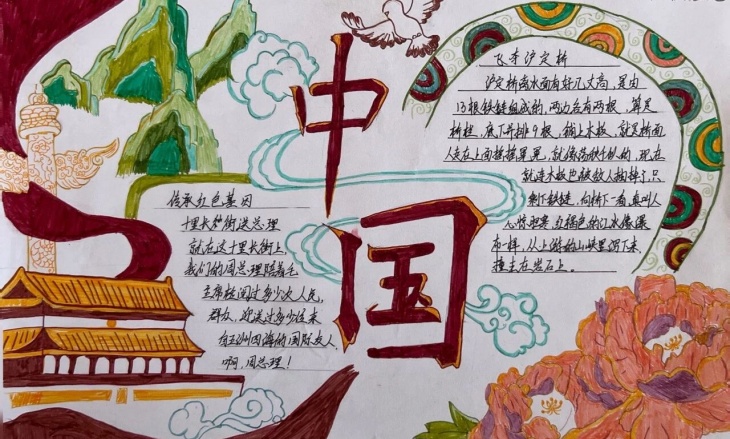 中国
传承红色基因
十里长街送总理
就在这十里长街上,
我们的周总理陪着毛
主席检阅过多少次人民,
群众,迎送过多少位来
自五洲四海的国际友人,
啊,周总理!
飞夺泸定桥
泸定桥离水面有好几丈高,是由
13根铁链组成的,两边各有两根,算是
桥栏,底下并排9根,铺上木板,就是桥面
人走在上面摇摇晃晃,就像荡秋千似的,现在
就连木板也被敌人抽掉了,只
剩下铁链,向桥下一看,真叫人
心惊胆寒,红褐色的江水像瀑
布一样,从上游的山峡里泻下来,
撞击在岩石上。